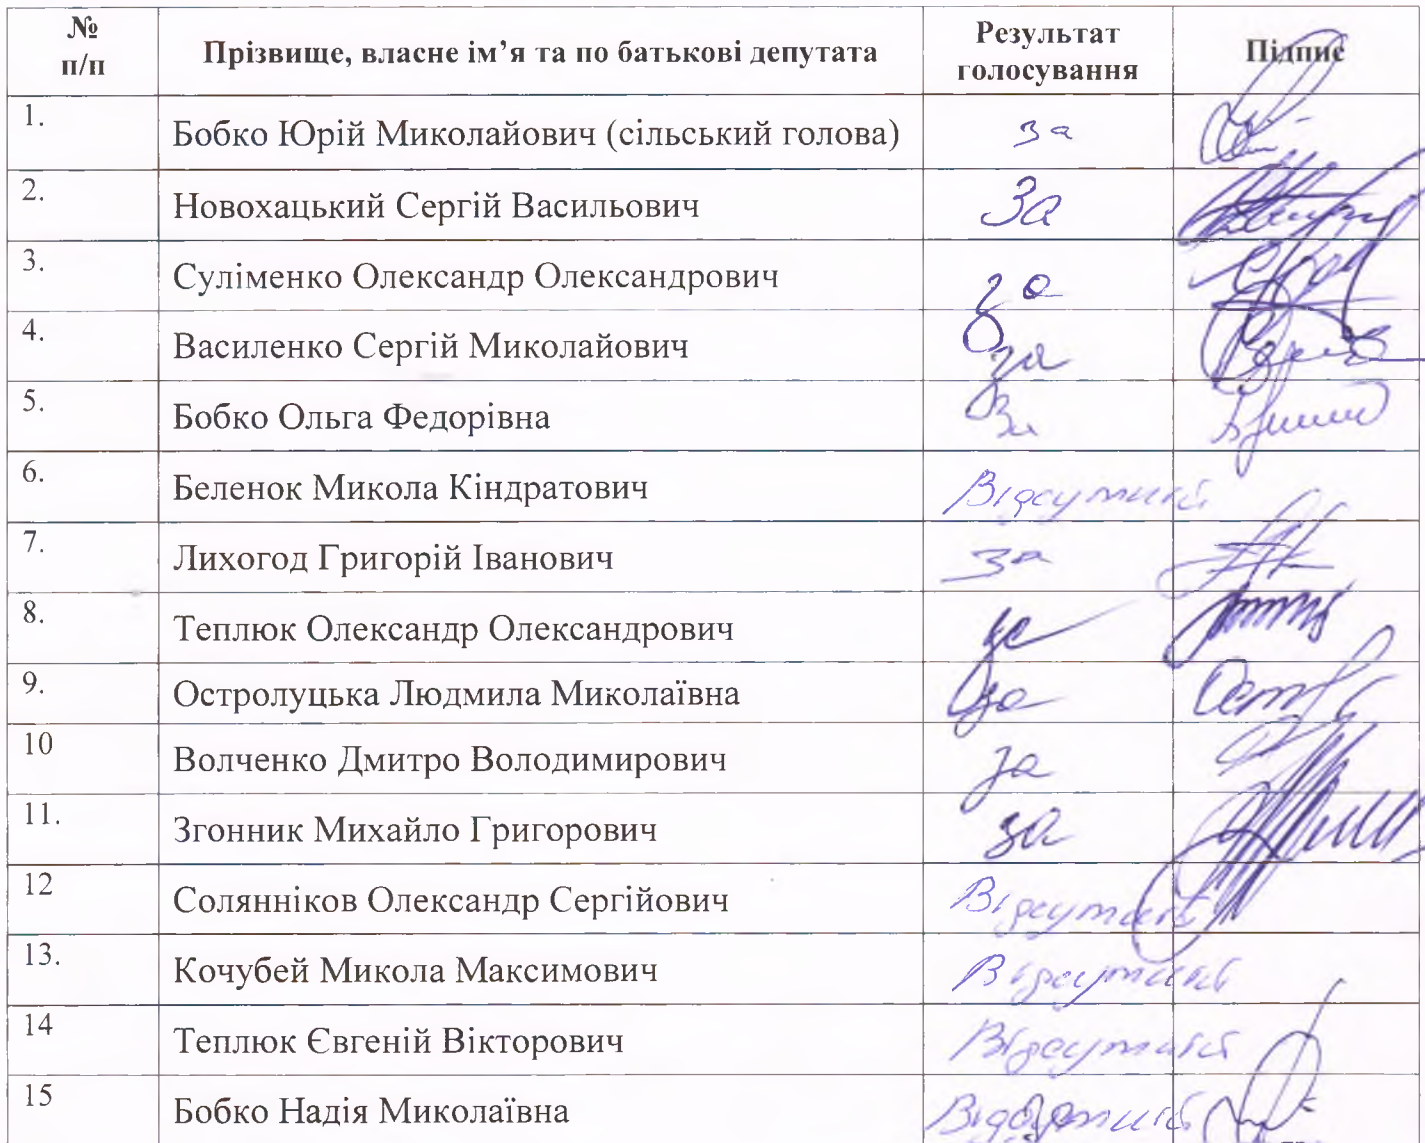 № п/п Прізвище, власне ім’я та по батькові депутата Результат голосування Підпис
1. Бобко Юрій Миколайович (сільський голова) за
2. Новохацький Сергій Васильович За
3. Суліменко Олександр Олександрович за
4. Василенко Сергій Миколайович за
5. Бобко Ольга Федорівна За
6. Беленок Микола Кіндратович Відсутній
7. Лихогод Григорій Іванович за
8. Теплюк Олександр Олександрович за
9. Остролуцька Людмила Миколаївна за
10 Волченко Дмитро Володимирович за
11. Згонник Михайло Григорович за
12 Солянніков Олександр Сергійович Відсутній
13. Кочубей Микола Максимович Відсутній
14 Теплюк Євгеній Вікторович Відсутній
15 Бобко Надія Миколаївна